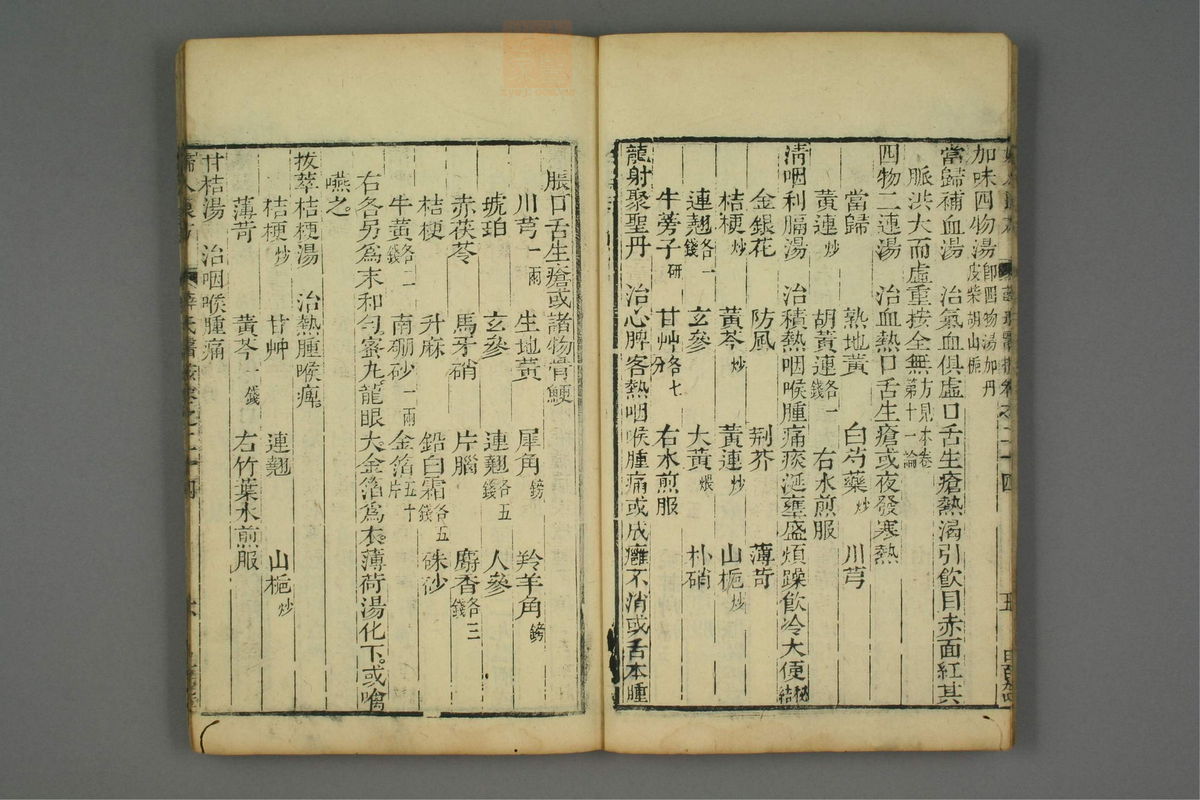 加味四物湯即四物湯加丹皮柴胡山梔
當歸補血湯 治氣血俱虛口舌生瘡熱渴引飲目赤面紅其
脈洪大而虛重按全無方見本卷第十一論
四物二連湯 治血熱口舌生瘡或夜發寒熱
當歸 熟地黃 白芍藥炒 川芎
黃連炒 胡黃連各一錢 右水煎服
清咽利膈湯 治積熱咽喉腫痛痰涎壅盛煩躁飲冷大便秘結
金銀花 防風 荊芥 薄苛
桔梗炒 黃芩炒 黃連炒 山梔炒
連翹各一錢 玄參 大黃煨 朴硝
牛蒡子研 甘艸各七分 右水煎服
龍射聚聖丹 治心脾客熱咽喉腫痛或成癰不消或舌本腫
脹口舌生瘡或諸物骨鯁
川芎一兩 生地黃 犀角鎊 羚羊角鎊
琥珀 玄參 連翹各五錢 人參
赤茯苓 馬牙硝 片腦 麝香各三錢
桔梗 升麻 鉛白霜各五錢 硃砂
牛黃各二錢 南硼砂一兩 金箔五十片
右各另為末和勻蜜丸龍眼大金箔為衣薄荷湯化下或噙
嚥之
拔萃桔梗湯 治熱腫喉痺
桔梗炒 甘艸 連翹 山梔炒
薄苛 黃芩一錢 右竹葉水煎服
甘桔湯 治咽喉腫痛